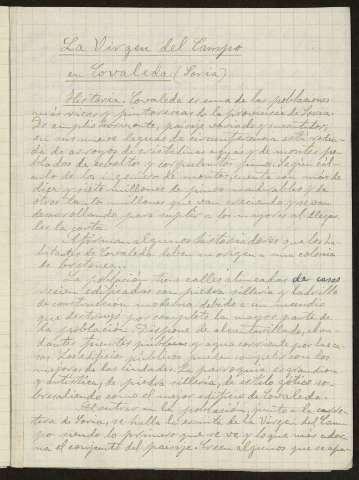 La Virgen del Campo
en Covaleda (Soria)
Historia. Covaleda es una de las poblaciones
más ricas y pintorescas de la provincia de Soria.
De amplio horizonte, paisaje variado y encantador,
en sin número de
da de arroyos de cristalinas aguas y de montes po-
blados de esbeltos y corpulentos pinos. Según cál-
culo de los ingenieros de montes, cuenta con más de
diez y siete millones de pinos maderables y de
otros tantos millones que van creciendo y se van
desarrollando para suplir a los mayores al llegar-
les la corta.
Afirman algunos historiadores que los ha-
bitantes de Covaleda deben su origen a una colonia
de bretones.
La población tiene calles alineadas de casas
recién edificadas con piedra sillería y ladrillo
de construcción moderna debido a un incendio
que destruyó por completo la mayor parte de
la población. Dispone de alcantarillado, abun-
dantes fuentes públicas y agua corriente por las ca-
sas. Los edificios públicos pueden competir con los
mejores de las ciudades. La parroquia es grandiosa
y artística, de piedra sillería, de estilo gótico so-
bresaliendo como el mejor edificio de Covaleda.
Al entrar en la población, junto a la carre-
tera de Soria, se halla la ermita de la Virgen del Cam-
po siendo lo primero que se ve y lo que más ador-
na el conjunto del paisaje. Creen algunos que se apa-